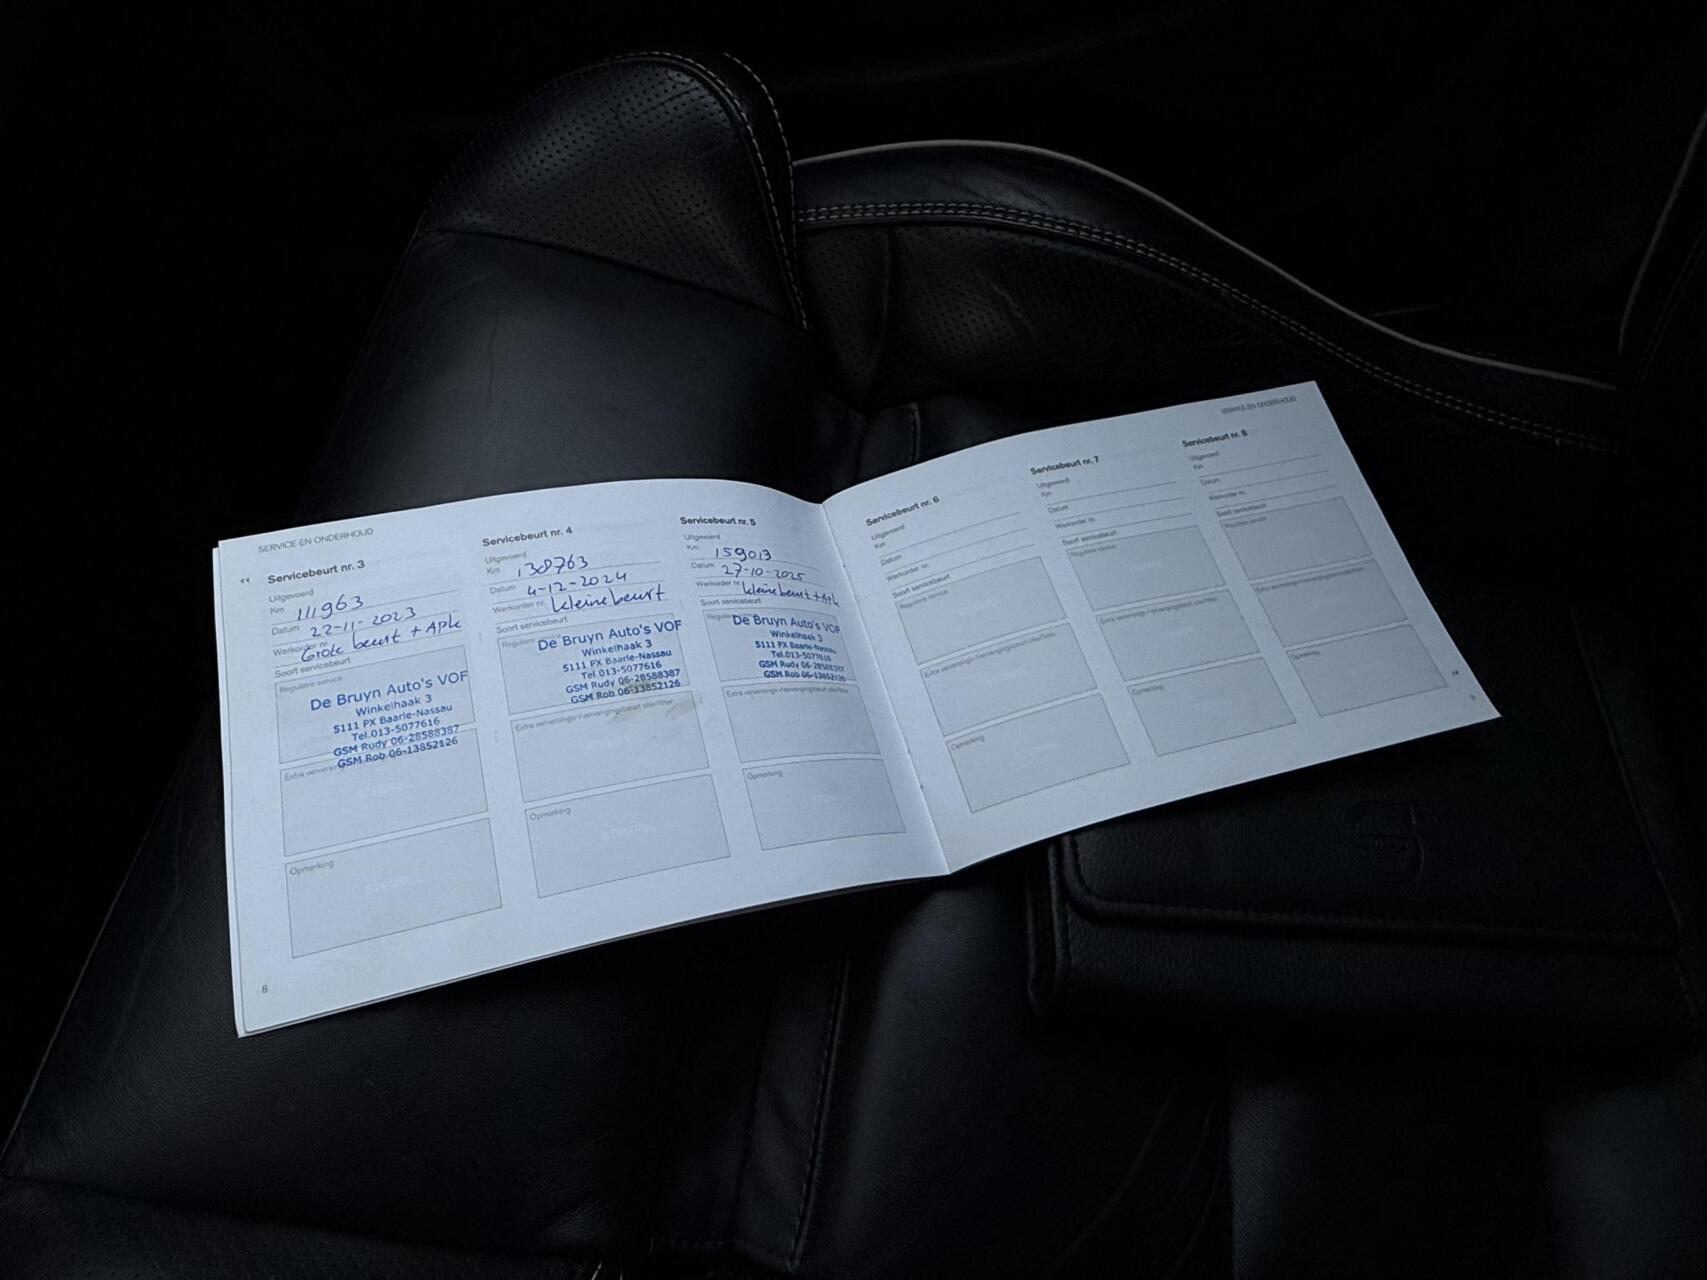 SERVICE EN ONDERHOUD
Servicebeurt nr. 3
Uitgevoerd
Km 111963
Datum 22-11-2023
Werkorder nr. Grote beurt + Apk
Soort servicebeurt
Reguliere service
De Bruyn Auto's VOF
Winkelhaak 3
5111 PX Baarle-Nassau
Tel.013-5077616
GSM Rudy 06-28588387
GSM Rob 06-13852126
Opmerking
8
Servicebeurt nr. 4
Uitgevoerd
Km 138763
Datum 4-12-2024
Werkorder nr. kleine beurt
Soort servicebeurt
De Bruyn Auto's VOF
Winkelhaak 3
5111 PX Baarle-Nassau
Tel.013-5077616
GSM Rudy 06-28588387
GSM Rob 06-13852126
Opmerking
Servicebeurt nr. 5
Uitgevoerd
Km 159013
Datum 27-10-2025
Werkorder nr. kleine beurt + Apk
Soort servicebeurt
De Bruyn Auto's VOF
Winkelhaak 3
5111 PX Baarle-Nassau
Tel.013-5077616
GSM Rudy 06-28588387
GSM Rob 06-13852126
Opmerking
SERVICE EN ONDERHOUD
Servicebeurt nr. 6
Uitgevoerd
Km
Datum
Werkorder nr.
Soort servicebeurt
Reguliere service
Opmerking
Servicebeurt nr. 7
Uitgevoerd
Km
Datum
Werkorder nr.
Soort servicebeurt
Reguliere service
Opmerking
Servicebeurt nr. 8
Uitgevoerd
Km
Datum
Werkorder nr.
Soort servicebeurt
Reguliere service
Opmerking
9